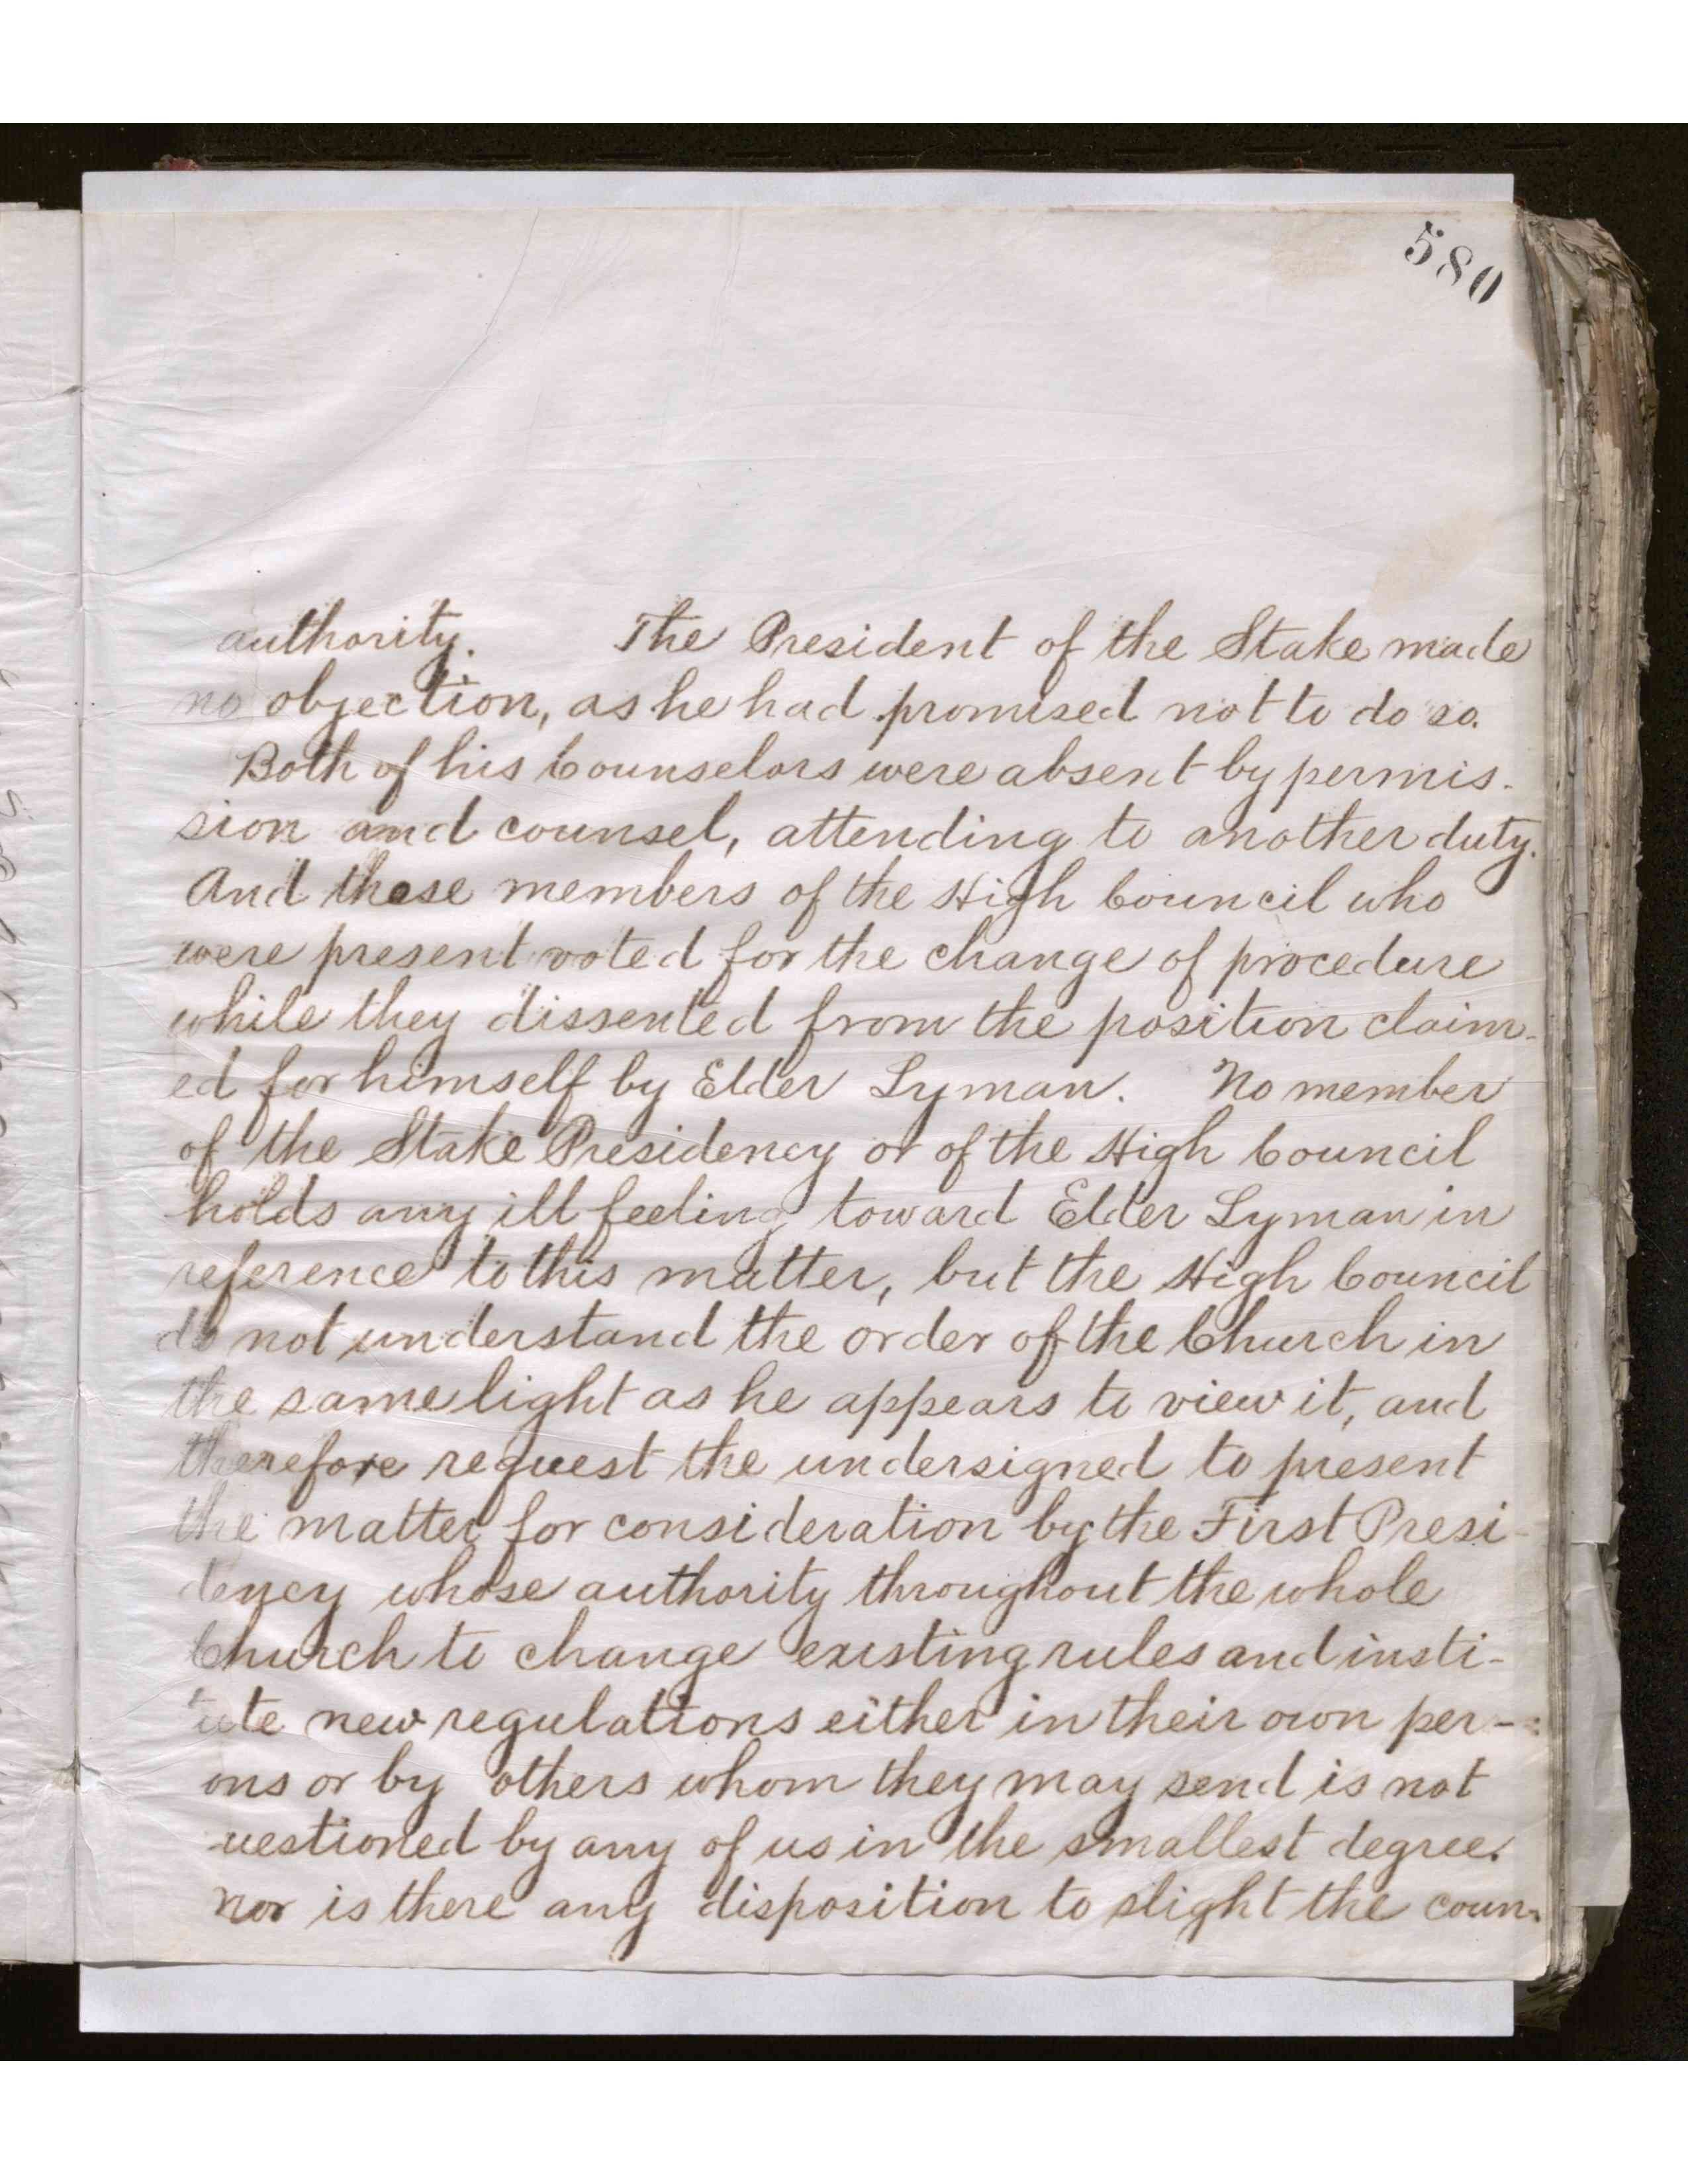 580
authority. The President of the Stake made
no objection, as he had promised not to do so.
Both of his Counselors were absent by permis-
sion and counsel, attending to another duty.
And those members of the High Council who
were present voted for the change of procedure
while they dissented from the position claim-
ed for himself by Elder Lyman. No member
of the Stake Presidency or of the High Council
holds any ill feeling toward Elder Lyman in
reference to this matter, but the High Council
do not understand the order of the Church in
the same light as he appears to view it, and
therefore request the undersigned to present
the matter for consideration by the First Presi-
dency whose authority throughout the whole
Church to change existing rules and insti-
tute new regulations either in their own per-
ons or by others whom they may send is not
uestioned by any of us in the smallest degree.
nor is there any disposition to slight the coun-